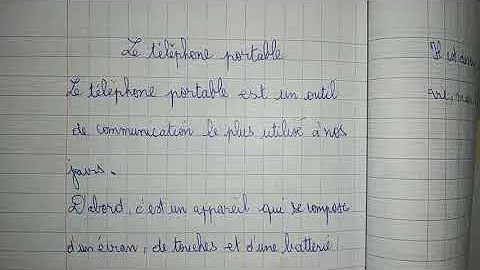 Le téléphone portable
Le téléphone portable est un outil
de communication le plus utilisé à nos
jours.
D'abord, c'est un appareil qui se compose
d'un écran, de touches et d'une batterie
Il